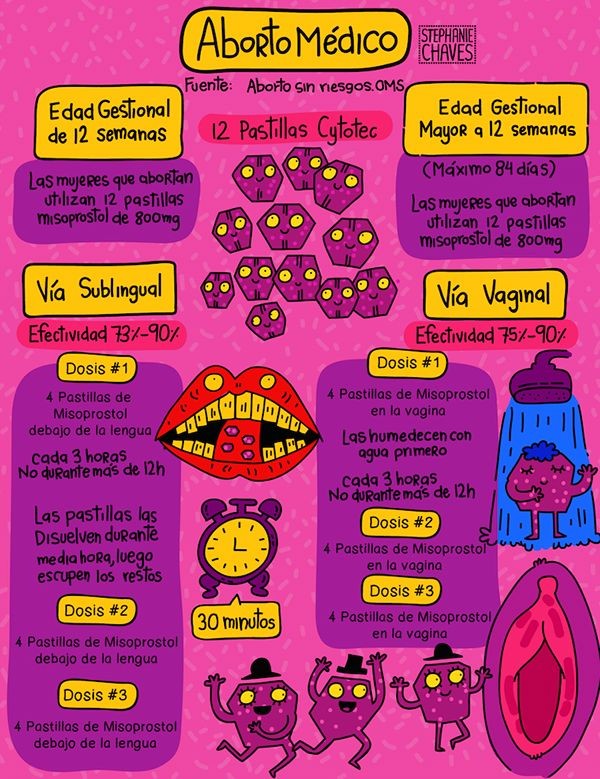 Aborto Médico
STEPHANIE
CHAVES
Fuente: Aborto sin riesgos.OMS
Edad Gestional
de 12 semanas
Las mujeres que abortan
utilizan 12 pastillas
misoprostol de 800mg
12 Pastillas Cytotec
Edad Gestional
Mayor a 12 semanas
(Máximo 84 días)
Las mujeres que abortan
utilizan 12 pastillas
misoprostol de 800mg
Vía Sublingual
Efectividad 73%-90%
Dosis #1
4 Pastillas de
Misoprostol
debajo de la lengua
cada 3 horas
No durante más de 12h
Las pastillas las
Disuelven durante
media hora, luego
escupen los restos
Dosis #2
4 Pastillas de Misoprostol
debajo de la lengua
Dosis #3
4 Pastillas de Misoprostol
debajo de la lengua
30 minutos
Vía Vaginal
Efectividad 75%-90%
Dosis #1
4 Pastillas de Misoprostol
en la vagina
Las humedecen con
agua primero
cada 3 horas
No durante más de 12h
Dosis #2
4 Pastillas de Misoprostol
en la vagina
Dosis #3
4 Pastillas de Misoprostol
en la vagina